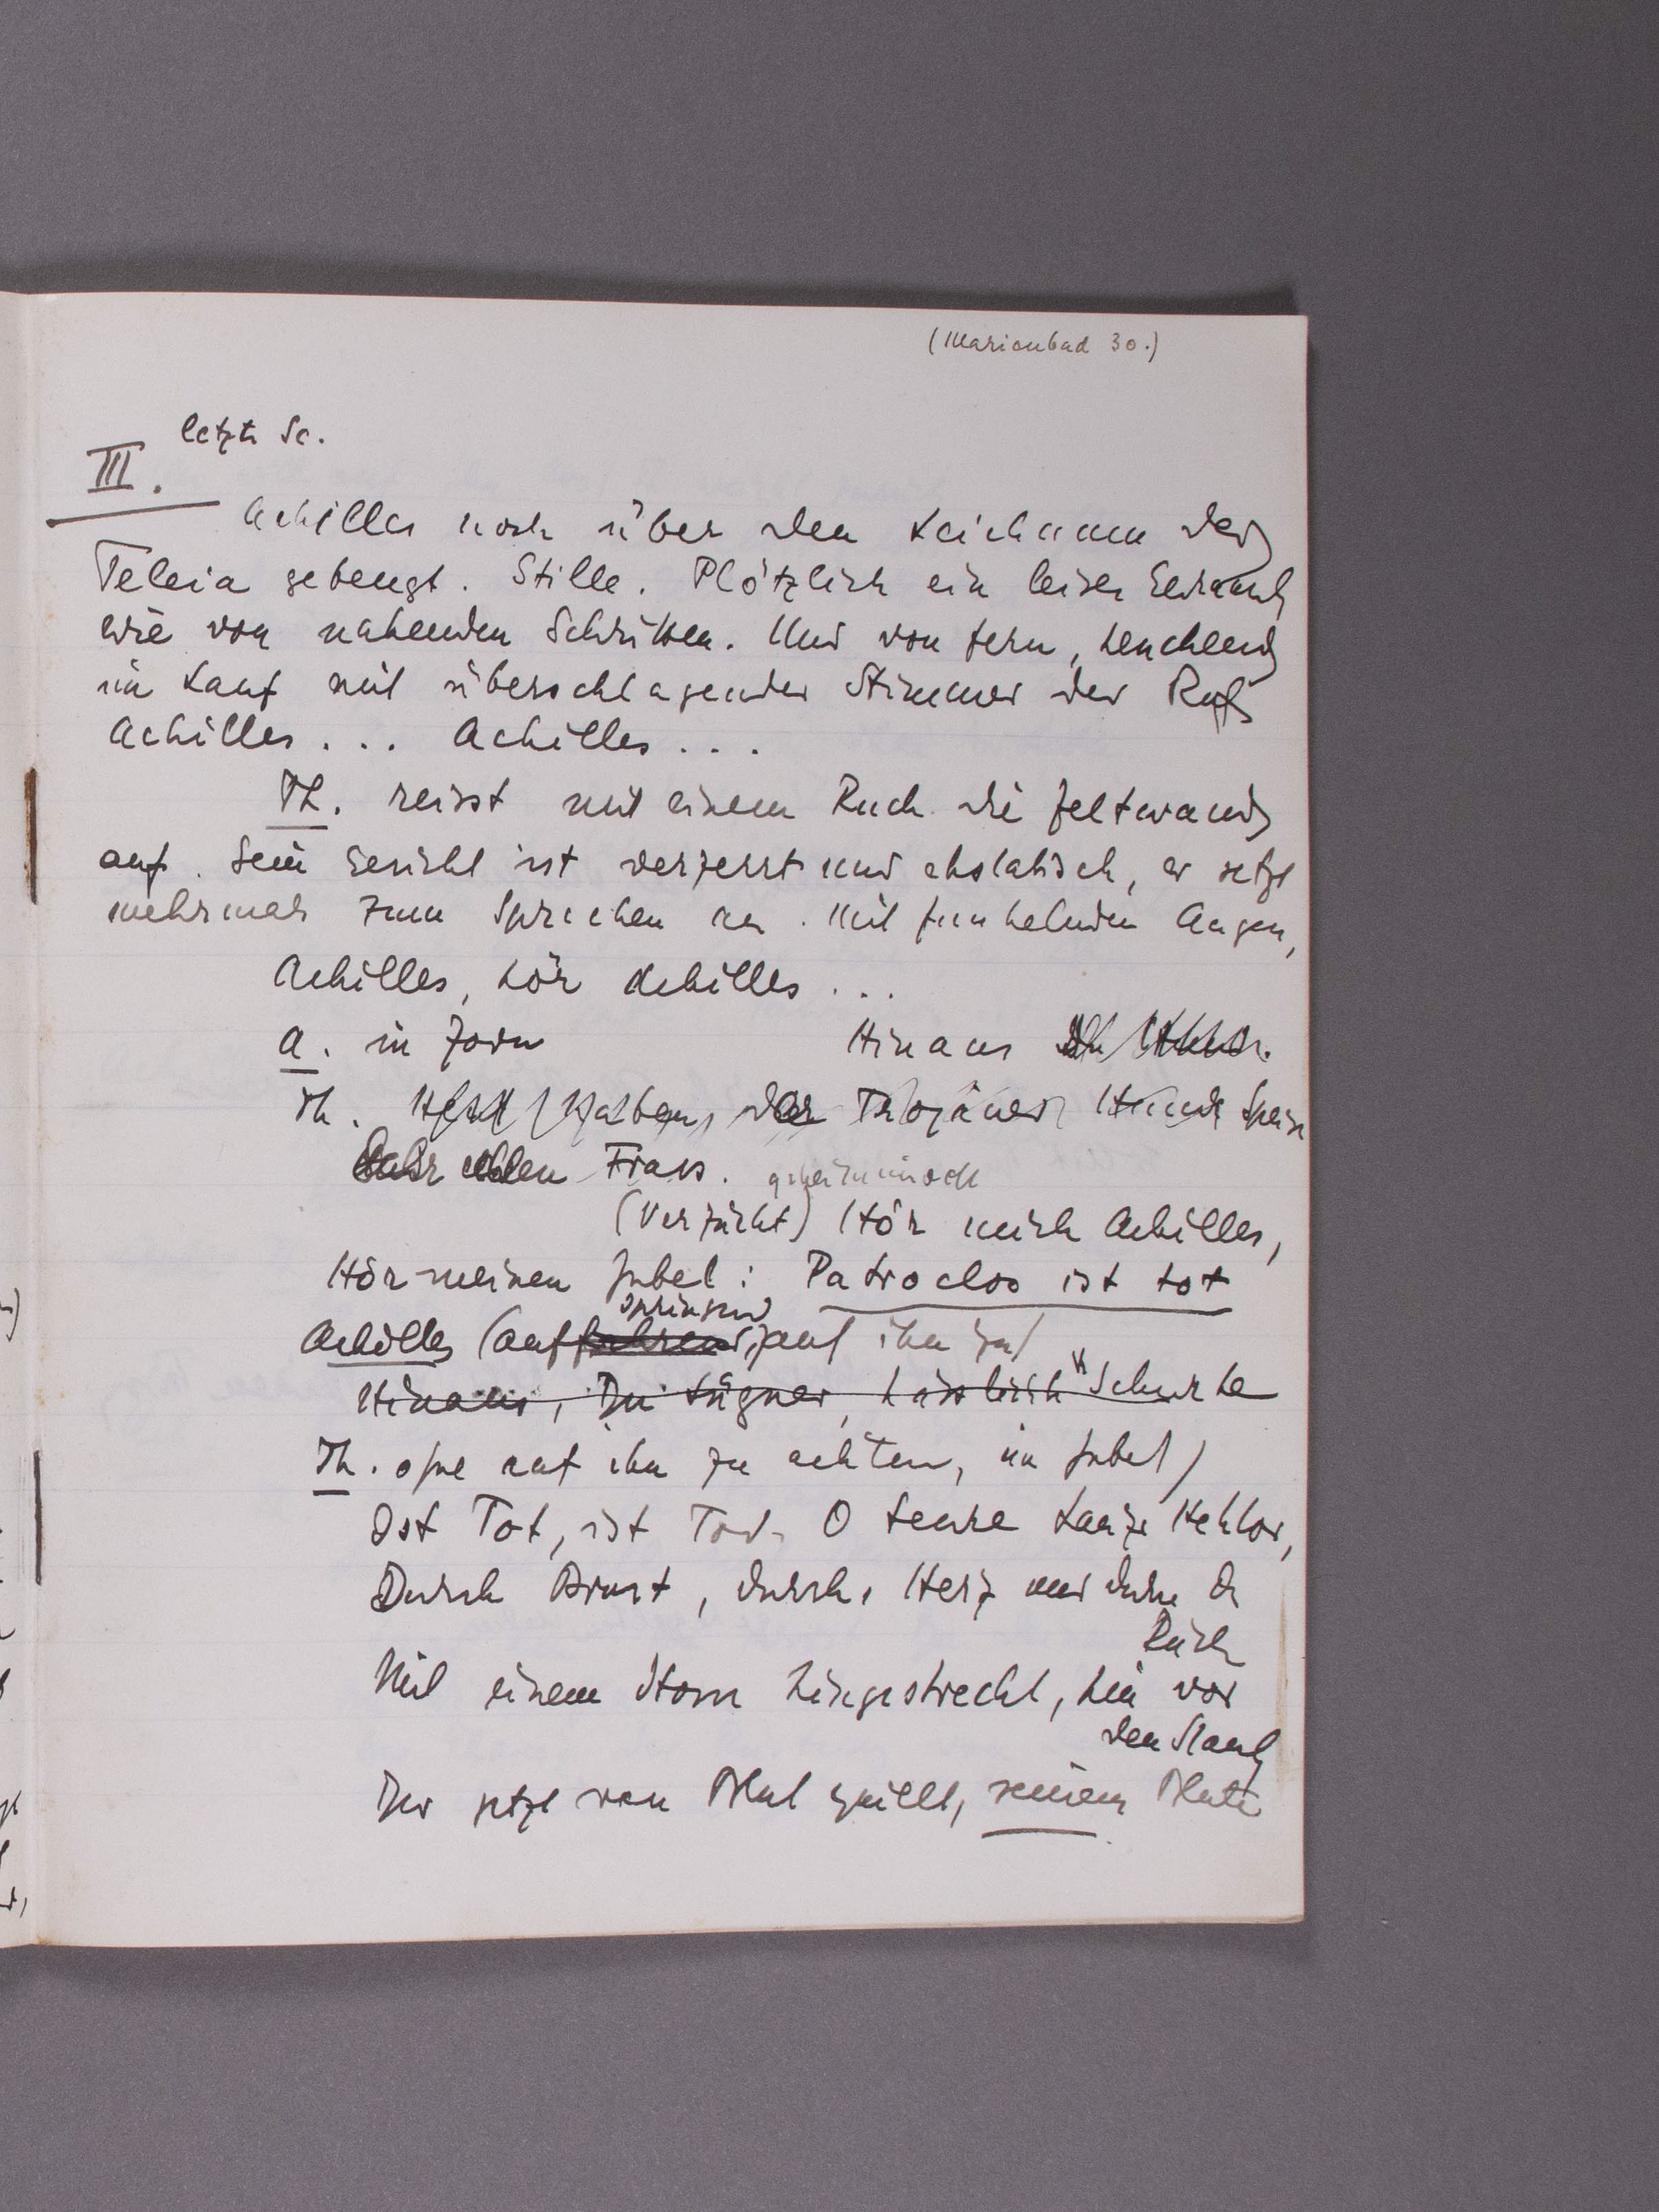 (Marienbad 30.)
letzte Sc.
III.
Achilles noch über den Leichnam der
Teleia gebeugt. Stille. Plötzlich ein leises Geräusch
wie von nahenden Schritten. Und von fern, keuchend
im Lauf mit überschlagender Stimme der Ruf
Achilles... Achilles...
Th. reisst mit einem Ruck die Zeltwand
auf. Sein Gesicht ist verzerrt und ekstatisch, er setzt
mehrmals zum Sprechen an. Mit funkelnden Augen,
Achilles, hör Achilles...
A. in Zorn Hinaus
Th. der Trojaner Hunde Speise
Frass. geheimnisvoll
(Verzückt) Hör mich Achilles,
Hör meinen Jubel: Patroclos ist tot
springend
Achilles (auffahrend, auf ihn zu)
Hinaus, Du Lügner, hässlich Schurke
Th. ohne auf ihn zu achten, im Jubel)
Ist Tot, ist Tod. O teure Lanze Hektor,
Durch Brust, durchs Herz und durch d
Rück
Mit einem Stoss hingestreckt, hin vor
den Staub
Der jetzt von Blut quillt, seinem Blute